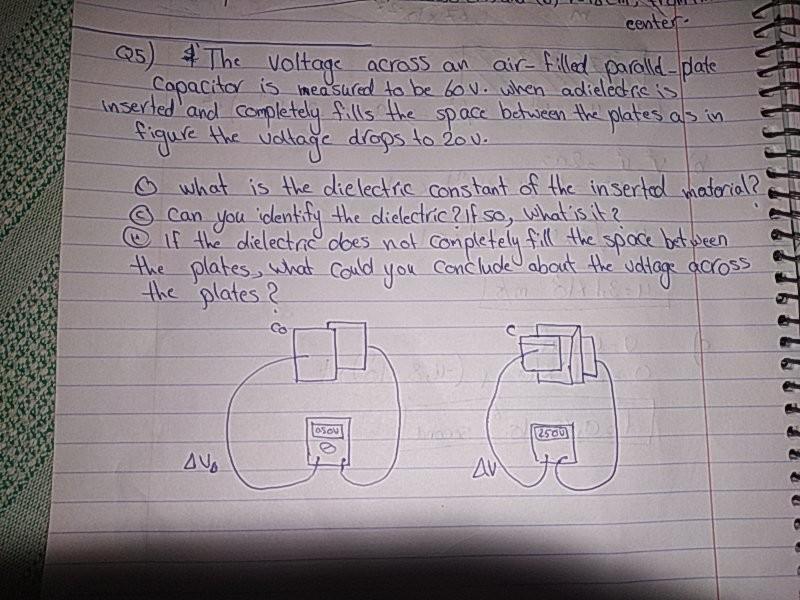 center.
Q5) The voltage across an air-filled paralld-plate
Capacitor is measured to be 60 v. when adielectric is
inserted and completely fills the space between the plates as in
figure the voltage drops to 20 v.
what is the dielectric constant of the inserted material?
Can you identify the dielectric? If so, what is it?
If the dielectric does not completely fill the space between
the plates, what could you conclude about the voltage across
the plates?
C0
C
050V
250V
ΔV0
ΔV